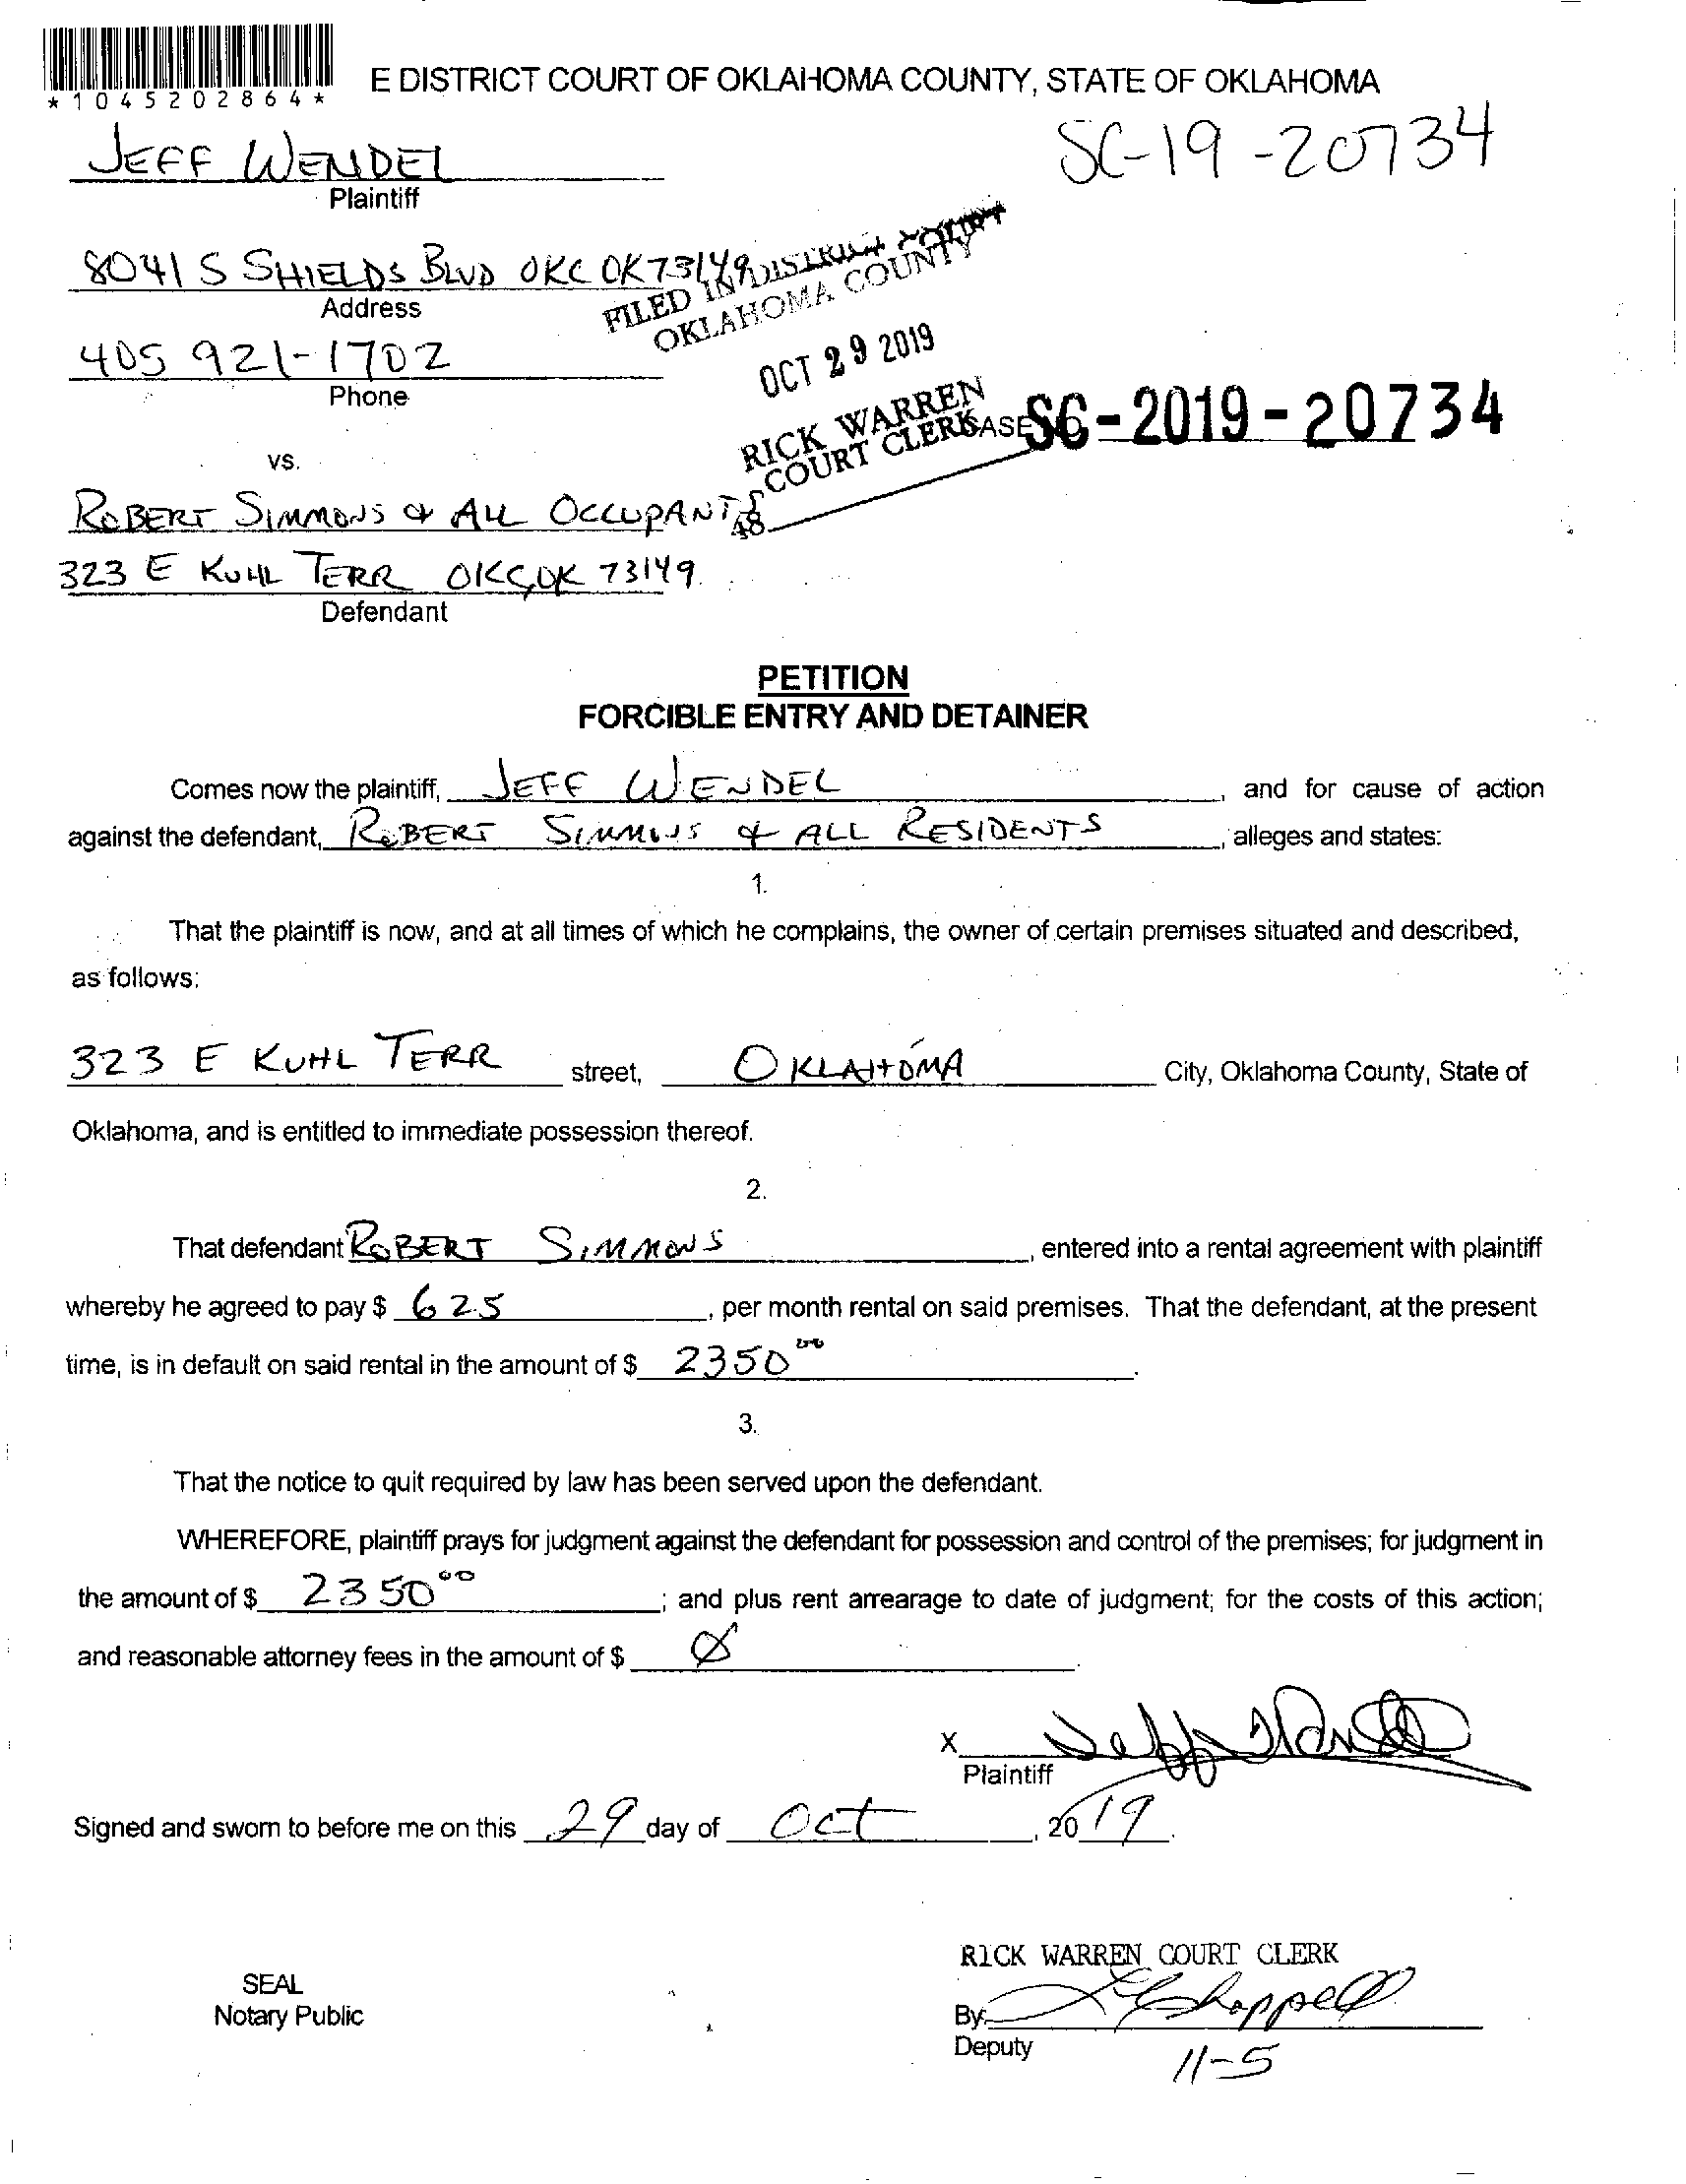 *1045202864*
E DISTRICT COURT OF OKLAHOMA COUNTY, STATE OF OKLAHOMA
SC-19-20734
JEFF WENDEL
Plaintiff
8041 S SHIELDS BLVD OKC OK 73149
Address
FILED IN DISTRICT COURT
OKLAHOMA COUNTY
405 921-1702
Phone
OCT 29 2019
RICK WARREN
COURT CLERK
48
CASE SC-2019-20734
vs.
ROBERT SIMMONS & ALL OCCUPANTS
323 E KUHL TERR OKC, OK 73149
Defendant
PETITION
FORCIBLE ENTRY AND DETAINER
Comes now the plaintiff, JEFF WENDEL, and for cause of action
against the defendant, ROBERT SIMMONS & ALL RESIDENTS, alleges and states:
1.
That the plaintiff is now, and at all times of which he complains, the owner of certain premises situated and described,
as follows:
323 E KUHL TERR street, OKLAHOMA City, Oklahoma County, State of
Oklahoma, and is entitled to immediate possession thereof.
2.
That defendant ROBERT SIMMONS, entered into a rental agreement with plaintiff
whereby he agreed to pay $ 625, per month rental on said premises. That the defendant, at the present
time, is in default on said rental in the amount of $ 2350 00.
3.
That the notice to quit required by law has been served upon the defendant.
WHEREFORE, plaintiff prays for judgment against the defendant for possession and control of the premises; for judgment in
the amount of $ 2350 00; and plus rent arrearage to date of judgment; for the costs of this action;
and reasonable attorney fees in the amount of $ Ø.
X Jeff Wendel
Plaintiff
Signed and sworn to before me on this 29 day of Oct, 2019.
RICK WARREN COURT CLERK
SEAL
Notary Public
By Chappell
Deputy
11-5